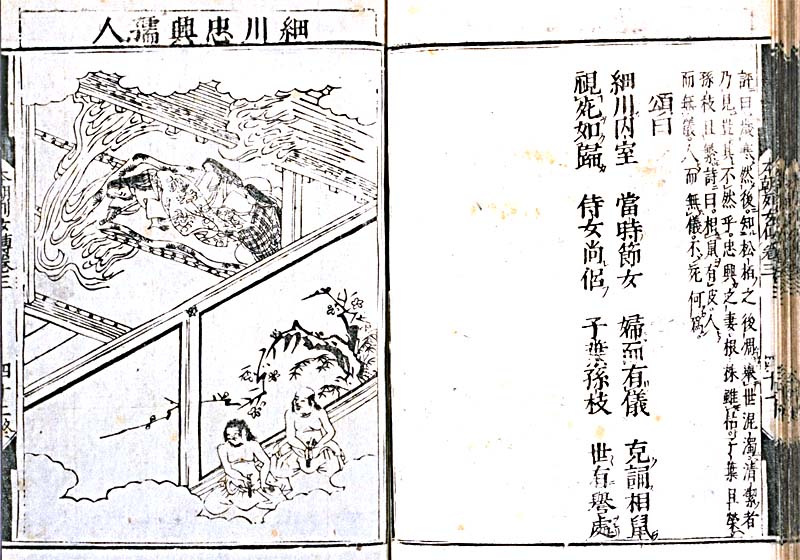 本朝列女傳卷三
評曰歳寒然後知松栢之後凋舉世混濁清潔者
乃見豈其不然乎忠興之妻根株雖枯子葉且榮
孫枝且繁詩曰相鼠有皮人
而無儀人而無儀不死何爲
頌曰
細川内室 當時節女 婦而有儀 克詞相鼠
視死如歸 侍女尚侶 子葉孫枝 世有譽處
細川忠興孺人
本朝列女傳卷三 四十二終